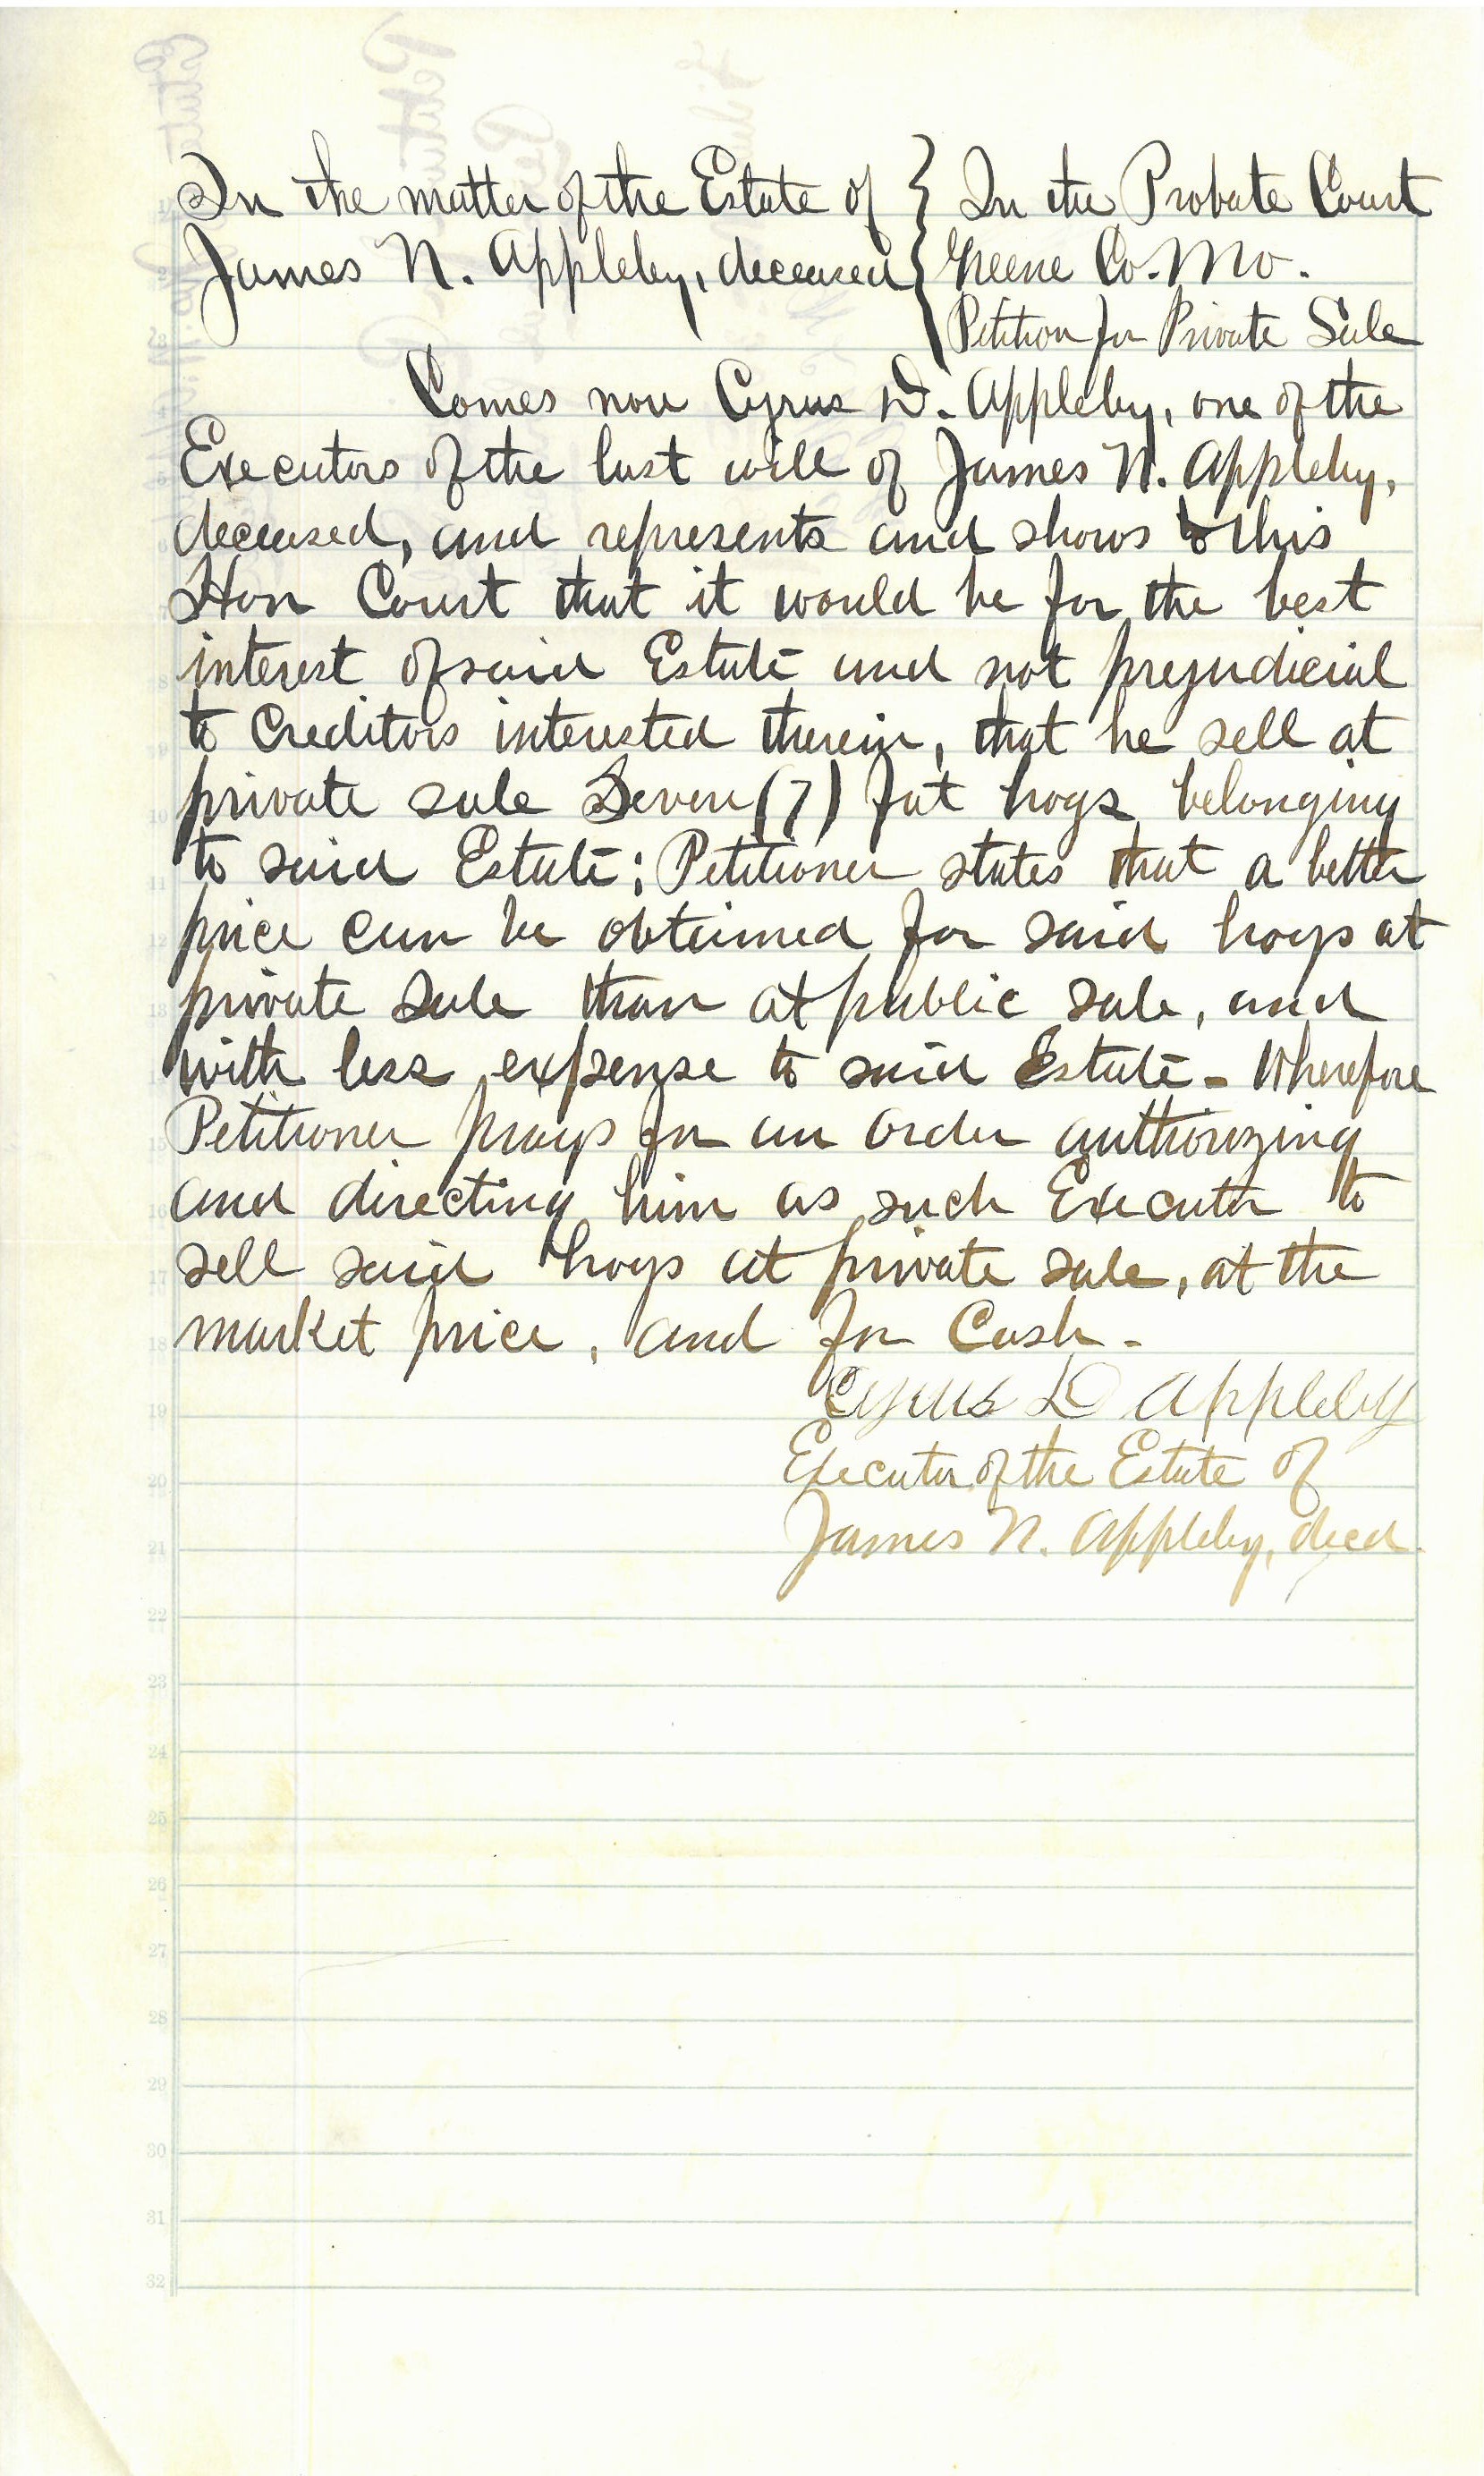 In the matter of the Estate of } In the Probate Court
James N. Appleby, deceased } Greene Co. Mo.
Petition for Private Sale
Comes now Cyrus D. Appleby, one of the
Executors of the last will of James N. Appleby,
deceased, and represents and shows to this
Hon Court that it would be for the best
interest of said Estate and not prejudicial
to Creditors interested therein, that he sell at
private sale Seven (7) fat hogs belonging
to said Estate; Petitioner states that a better
price can be obtained for said hogs at
private sale than at public sale, and
with less expense to said Estate - Wherefore
Petitioner prays for an order authorizing
and directing him as such Executor to
sell said hogs at private sale, at the
market price, and for Cash -
Cyrus D Appleby
Executor of the Estate of
James N. Appleby, decd.